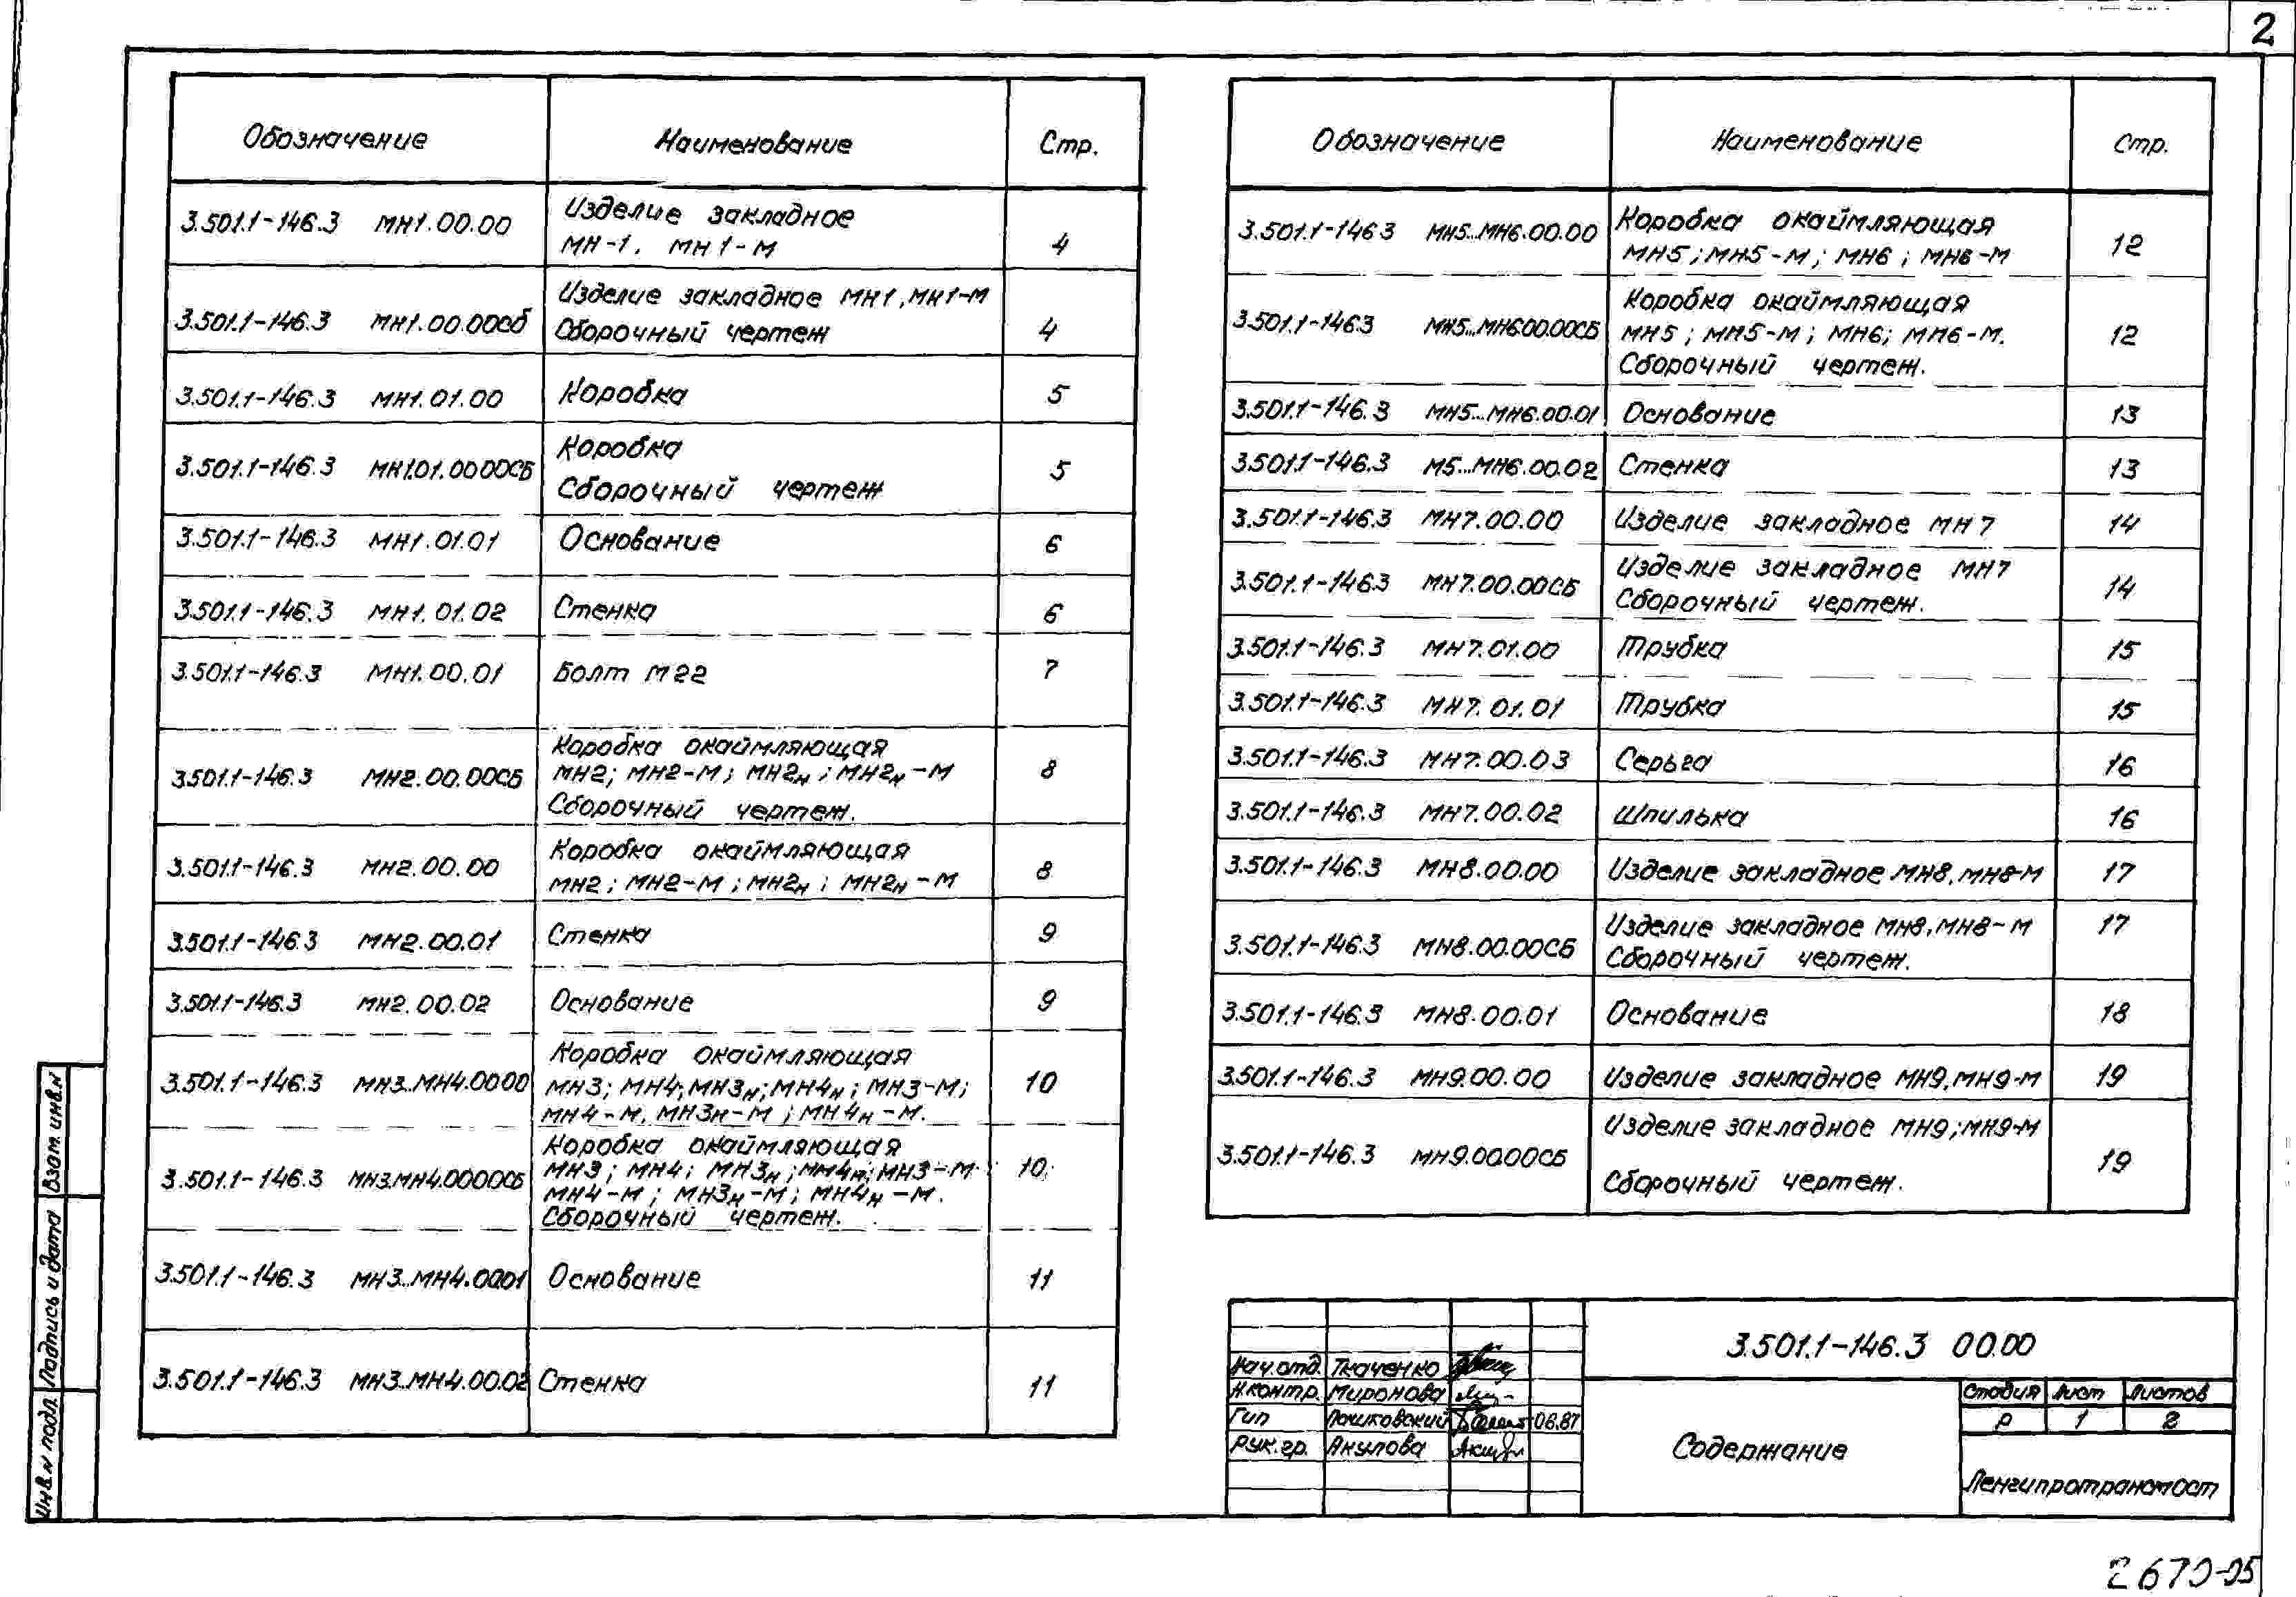 2
Обозначение Наименование Стр.
3.501.1-146.3 МН1.00.00 Изделие закладное
МН-1, МН1-М 4
3.501.1-146.3 МН1.00.00Сб Изделие закладное МН1, МН1-М
Сборочный чертеж 4
3.501.1-146.3 МН1.01.00 Коробка 5
3.501.1-146.3 МН1.01.00 00СБ Коробка
Сборочный чертеж 5
3.501.1-146.3 МН1.01.01 Основание 6
3.501.1-146.3 МН1.01.02 Стенка 6
3.501.1-146.3 МН1.00.01 Болт М22 7
3.501.1-146.3 МН2.00.00СБ Коробка окаймляющая
МН2; МН2-М; МН2н; МН2н-М 8
Сборочный чертеж.
3.501.1-146.3 МН2.00.00 Коробка окаймляющая
МН2; МН2-М; МН2н; МН2н-М 8
3.501.1-146.3 МН2.00.01 Стенка 9
3.501.1-146.3 МН2.00.02 Основание 9
3.501.1-146.3 МН3..МН4.0000 Коробка окаймляющая
МН3; МН4; МН3н; МН4н; МН3-М; 10
МН4-М, МН3н-М; МН4н-М.
3.501.1-146.3 МН3.МН4.0000СБ Коробка окаймляющая
МН3; МН4; МН3н; МН4н; МН3-М 10
МН4-М; МН3н-М; МН4н-М.
Сборочный чертеж.
3.501.1-146.3 МН3..МН4.0001 Основание 11
3.501.1-146.3 МН3..МН4.00.02 Стенка 11
Обозначение Наименование Стр.
3.501.1-146 3 МН5...МН6.00.00 Коробка окаймляющая
МН5; МН5-М; МН6; МН6-М 12
3.501.1-146.3 МН5...МН6.00.00СБ Коробка окаймляющая
МН5; МН5-М; МН6; МН6-М. 12
Сборочный чертеж.
3.501.1-146.3 МН5...МН6.00.01 Основание 13
3.501.1-146.3 М5...МН6.00.02 Стенка 13
3.501.1-146.3 МН7.00.00 Изделие закладное МН7 14
3.501.1-146.3 МН7.00.00СБ Изделие закладное МН7
Сборочный чертеж. 14
3.501.1-146.3 МН7.01.00 Трубка 15
3.501.1-146.3 МН7.01.01 Трубка 15
3.501.1-146.3 МН7.00.03 Серьга 16
3.501.1-146.3 МН7.00.02 Шпилька 16
3.501.1-146.3 МН8.00.00 Изделие закладное МН8, МН8-М 17
3.501.1-146.3 МН8.00.00СБ Изделие закладное МН8, МН8-М 17
Сборочный чертеж.
3.501.1-146.3 МН8.00.01 Основание 18
3.501.1-146.3 МН9.00.00 Изделие закладное МН9, МН9-М 19
3.501.1-146.3 МН9.00.00СБ Изделие закладное МН9; МН9-М
Сборочный чертеж. 19
3.501.1-146.3 00.00
Нач.отд. Ткаченко
Н.контр. Миронова
Гип Пошковский 06.87
Рук.гр. Акулова
Содержание
Стадия Лист Листов
Р 1 2
Ленгипротрансмост
Взам. инв.N
Подпись и дата
Инв.N подл.
2670-05